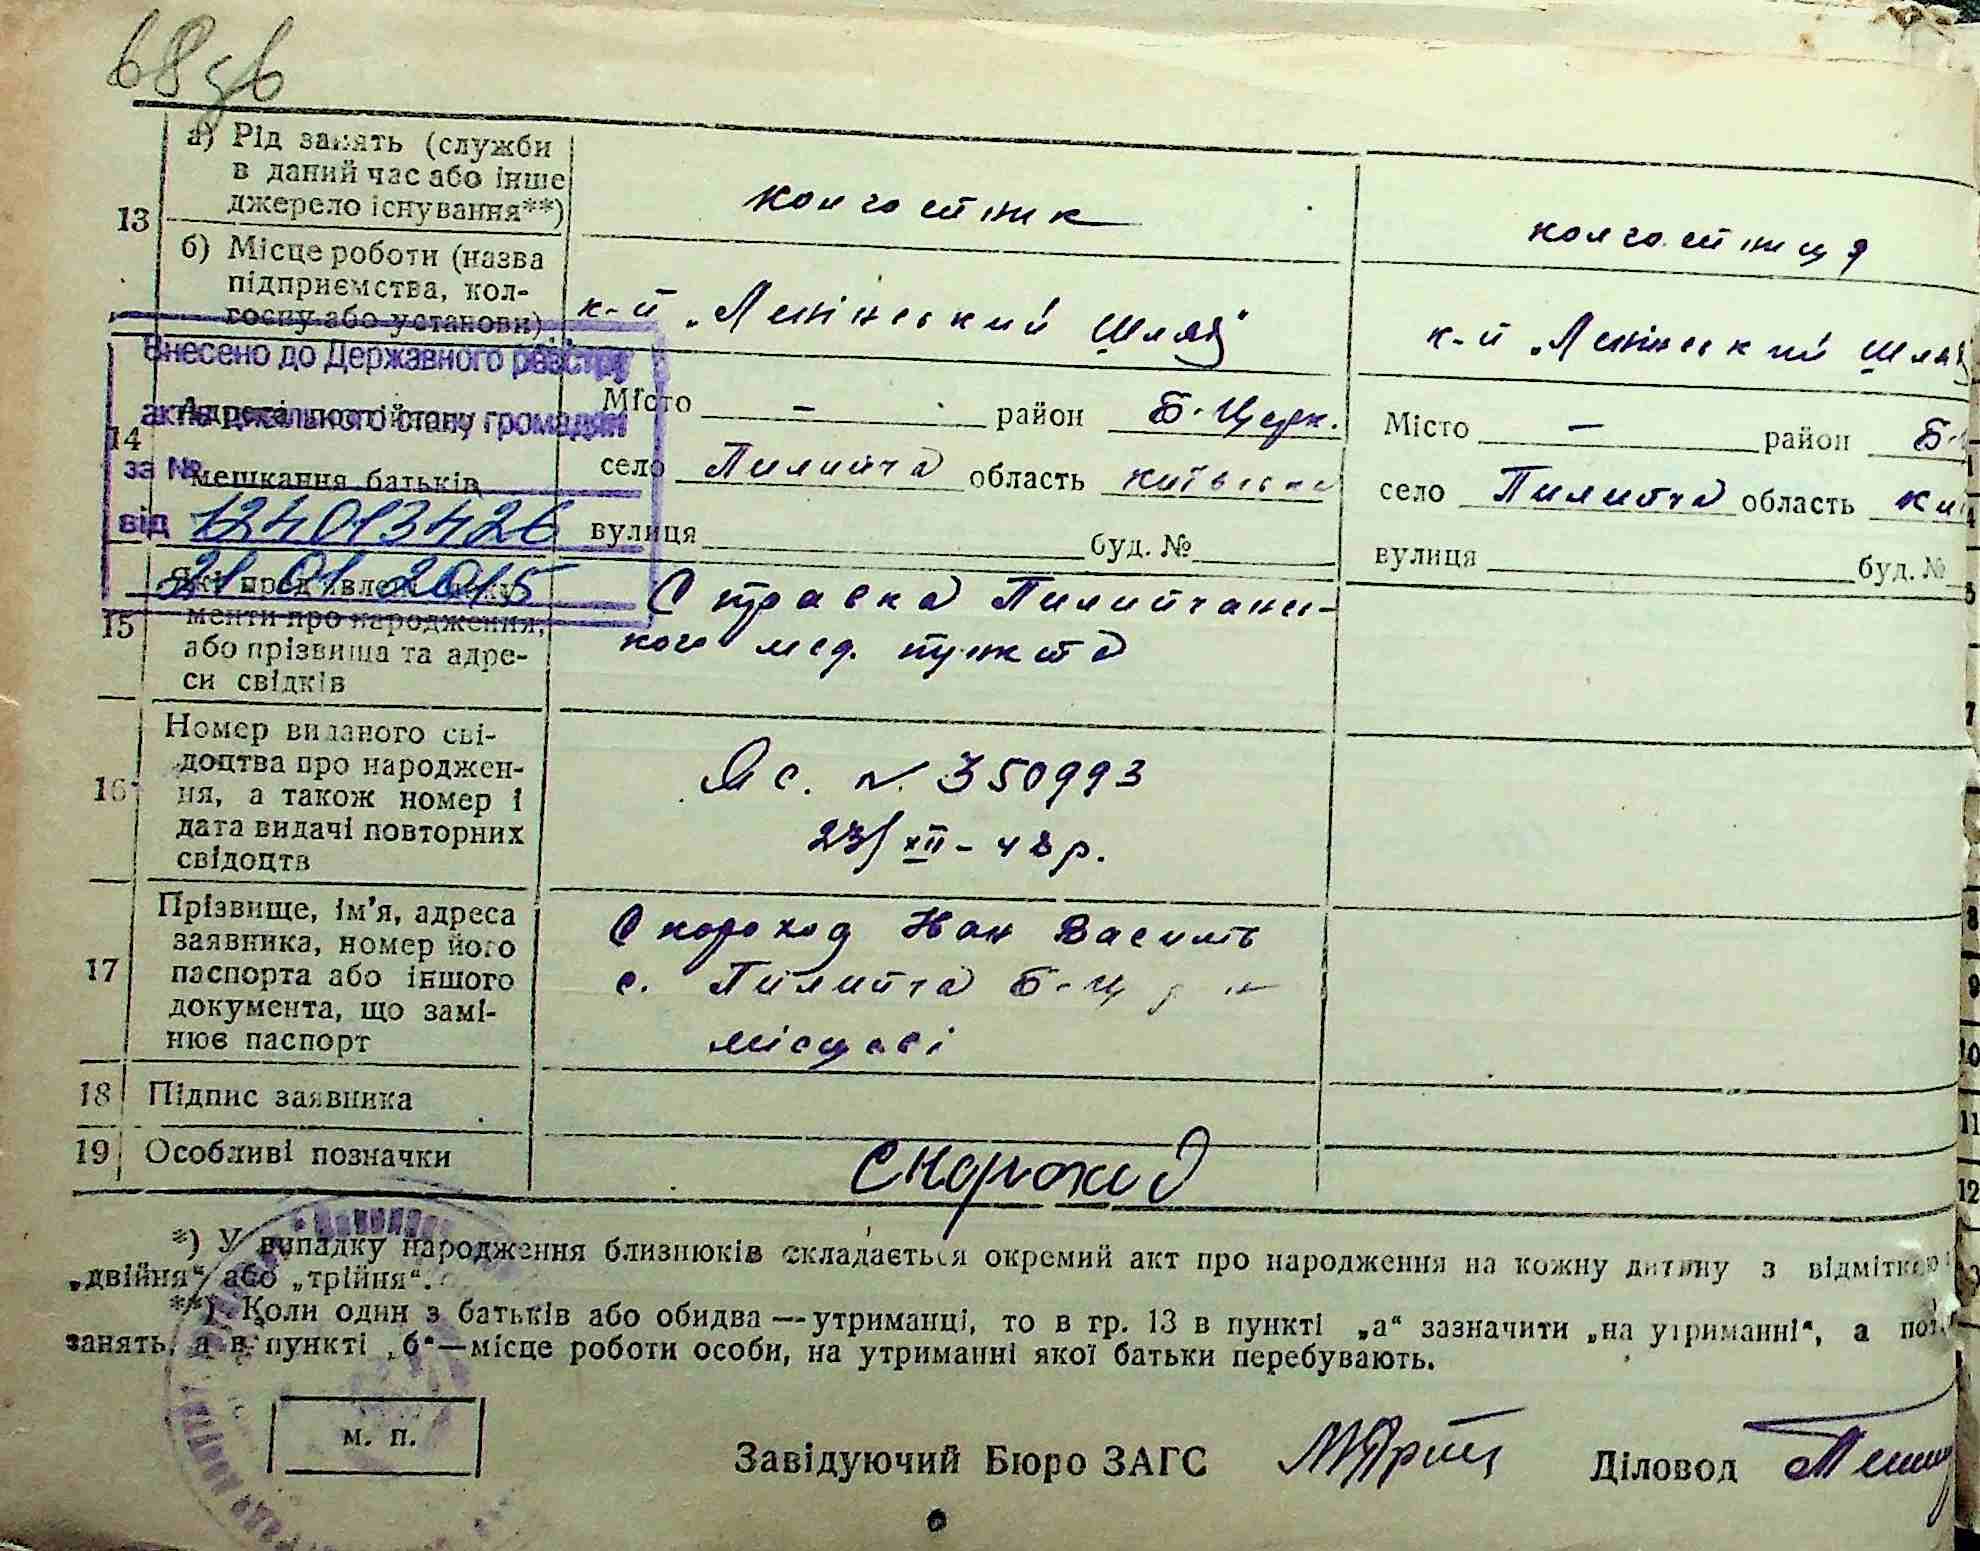 68зв
13
а) Рід занять (служби
в даний час або інше
джерело існування**)
колгостник
колгостниця
б) Місце роботи (назва
підприємства, кол-
госпу або установи)
к-п „Ленінський шлях"
к-п „Ленінський шлях
Внесено до Державного реєстру
актів цивільного стану громадян
за №
від 124013426
21 01 2015
14
Адреса постійного
мешкання батьків
Місто – район Б-Церк.
село Пилипча область київська
вулиця буд. №
Місто – район Б-
село Пилипча область Ки
вулиця буд. №
15
Які пред'явлені доку-
менти про народження,
або прізвища та адре-
си свідків
Справка Пилипчанс-
кого мед. пункта
16
Номер виданого сві-
доцтва про народжен-
ня, а також номер і
дата видачі повторних
свідоцтв
Яс. N. 350993
23/XII-48р.
17
Прізвище, ім'я, адреса
заявника, номер його
паспорта або іншого
документа, що замі-
нює паспорт
Скороход Іван Василь
с. Пилипча Б-Ц
місцеві
18 Підпис заявника
19 Особливі позначки
Скороход
*) У випадку народження близнюків складається окремий акт про народження на кожну дитину з відміткою
„двійня“ або „трійня“.
**) Коли один з батьків або обидва — утриманці, то в гр. 13 в пункті „а“ зазначити „на утриманні“, а
занять, а в пункті „б“—місце роботи особи, на утриманні якої батьки перебувають.
м. п.
Завідуючий Бюро ЗАГС
Діловод